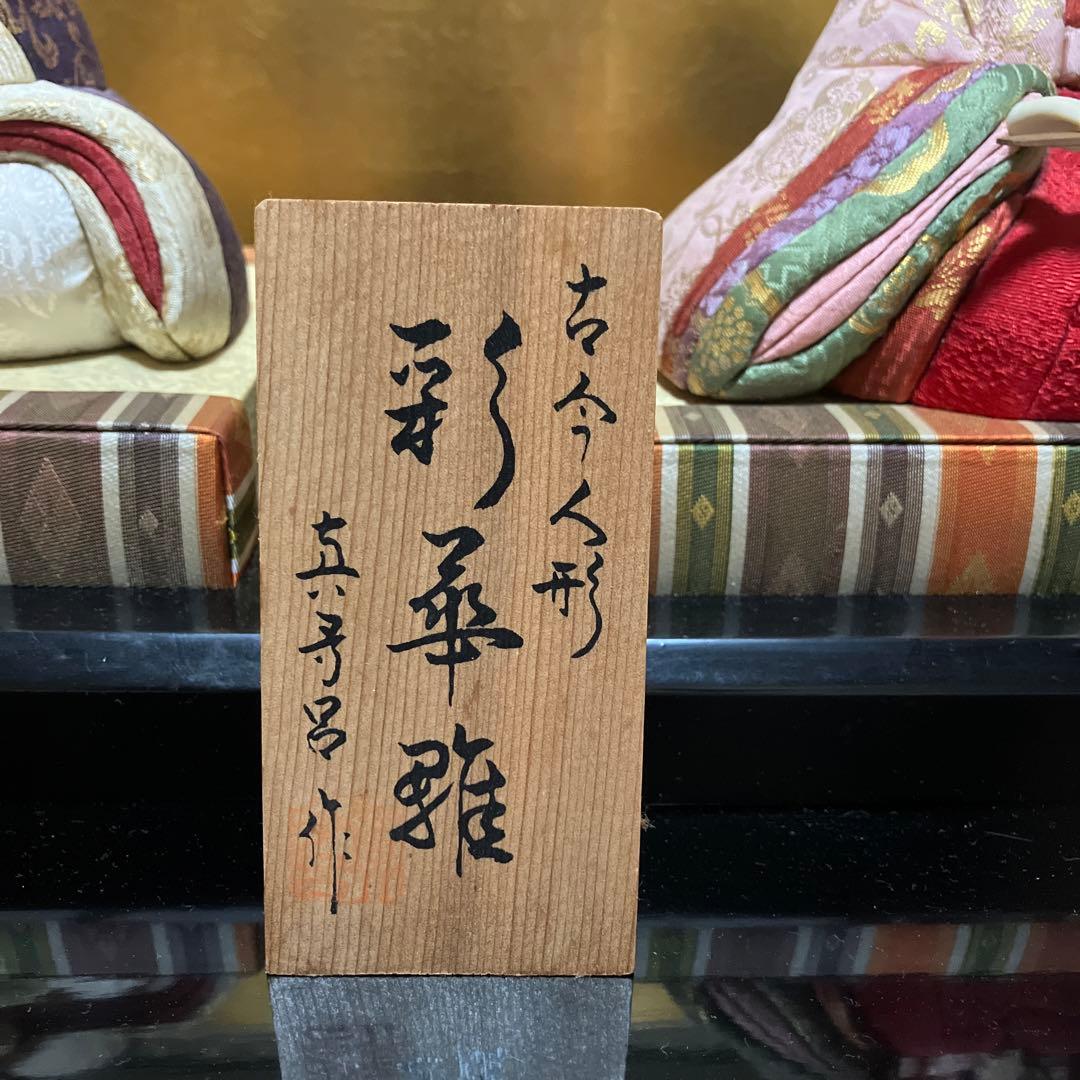 古今人形
彩華雛
真寿呂作